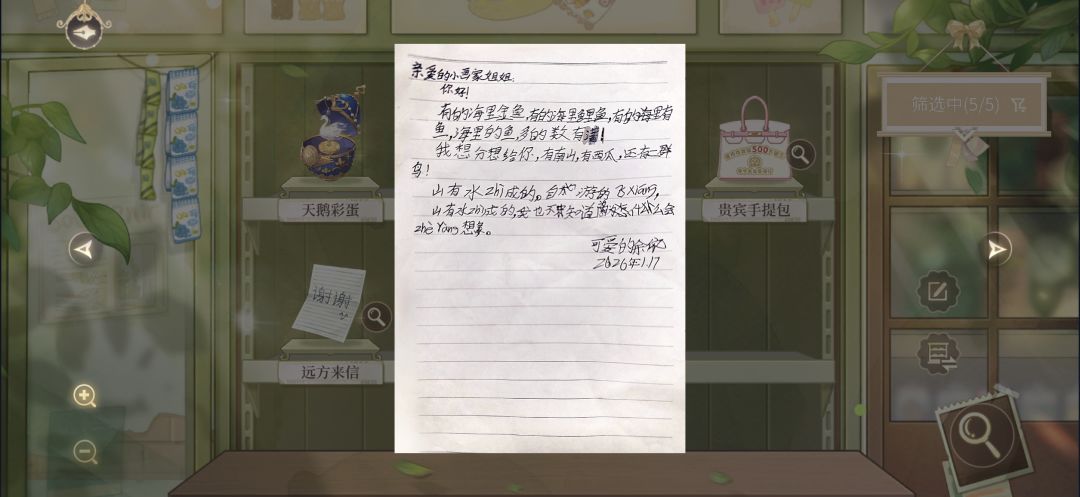 筛选中(5/5)
亲爱的小画家姐姐:
你好!
有的海里金鱼,有的海里鲤鱼,有的海里有
鱼,海里的鱼,多的数有!
我想分想给你,有南山,有西瓜,还有一群
鸟!
山有水zhǐ成的。自 游的飞xiáng,
山有水zhǐ成的,我也不知道 为什么会
zhè yàng想象。
可爱的
2026年1.17
天鹅彩蛋
500
贵宾手提包
谢谢
远方来信